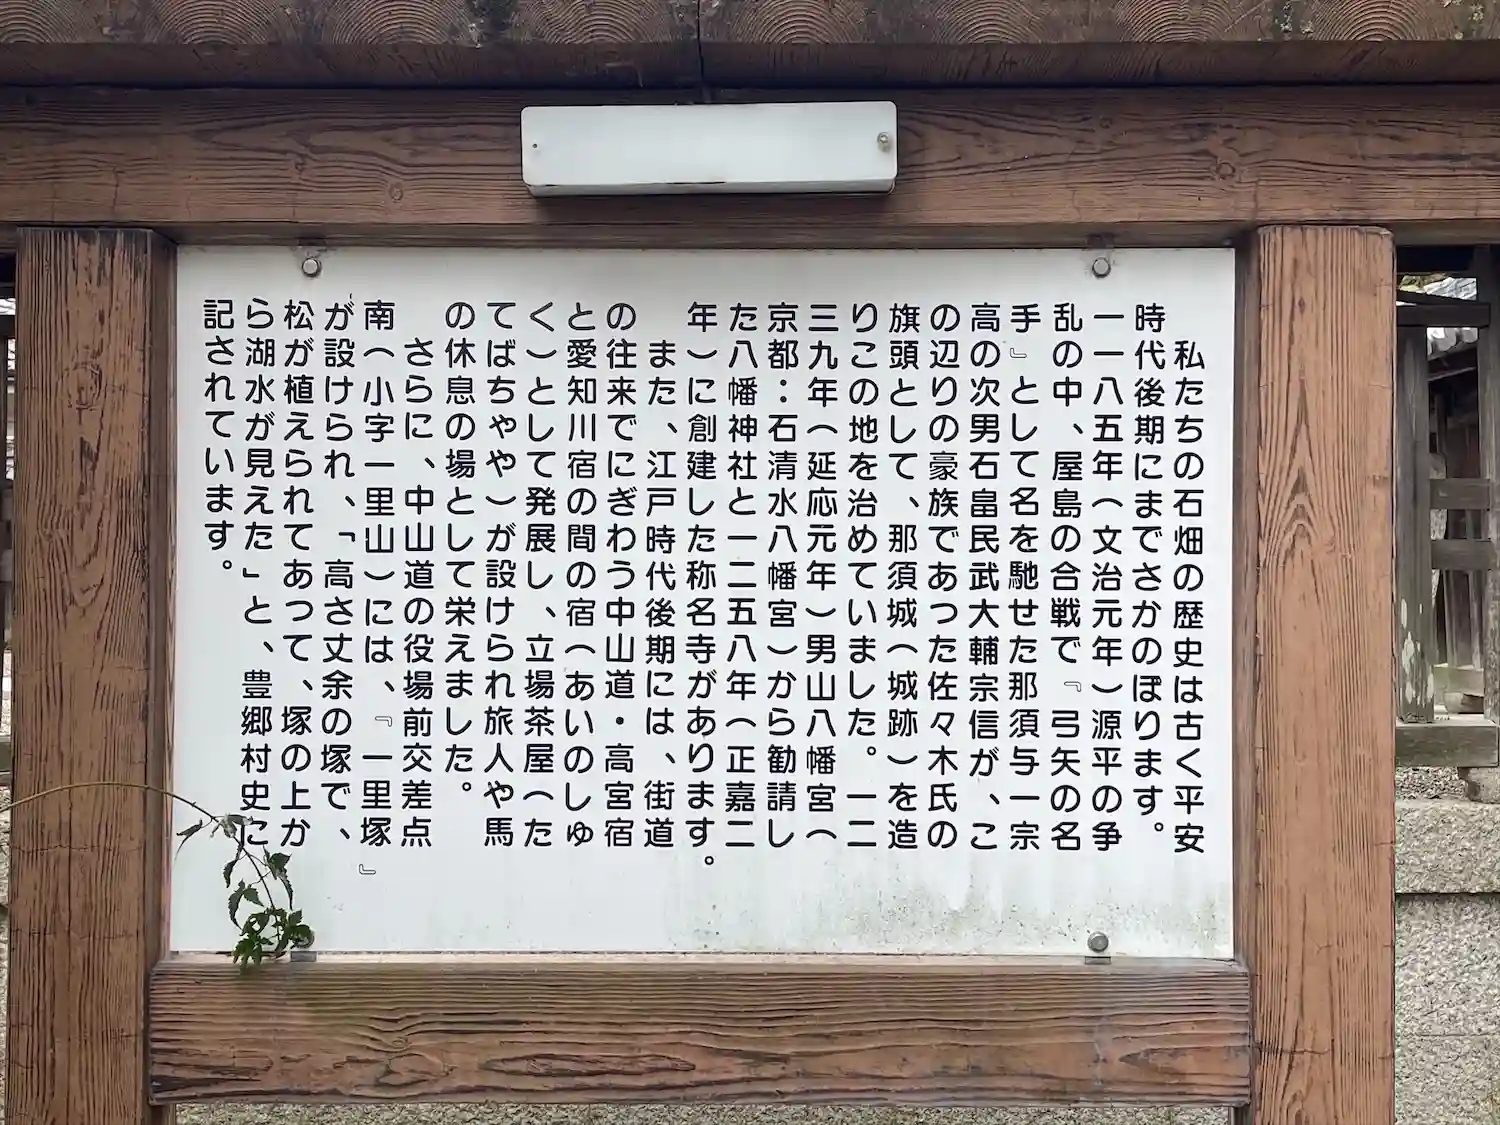 私たちの石畑の歴史は古く平安
時代後期にまでさかのぼります。
一一八五年（文治元年）源平の争
乱の中、屋島の合戦で『弓矢の名
手』として名を馳せた那須与一宗
高の次男石畠民武大輔宗信が、こ
の辺りの豪族であった佐々木氏の
旗頭として、那須城（城跡）を造
りこの地を治めていました。一二
三九年（延応元年）男山八幡宮（
京都：石清水八幡宮）から勧請し
た八幡神社と一二五八年（正嘉二
年）に創建した称名寺があります。
また、江戸時代後期には、街道
の往来でにぎわう中山道・高宮宿
と愛知川宿の間の宿（あいのしゅ
く）として発展し、立場茶屋（た
てばちゃや）が設けられ旅人や馬
の休息の場として栄えました。
さらに、中山道の役場前交差点
南（小字一里山）には、『一里塚』
が設けられ、「高さ丈余の塚で、
松が植えられてあって、塚の上か
ら湖水が見えた」と、豊郷村史に
記されています。